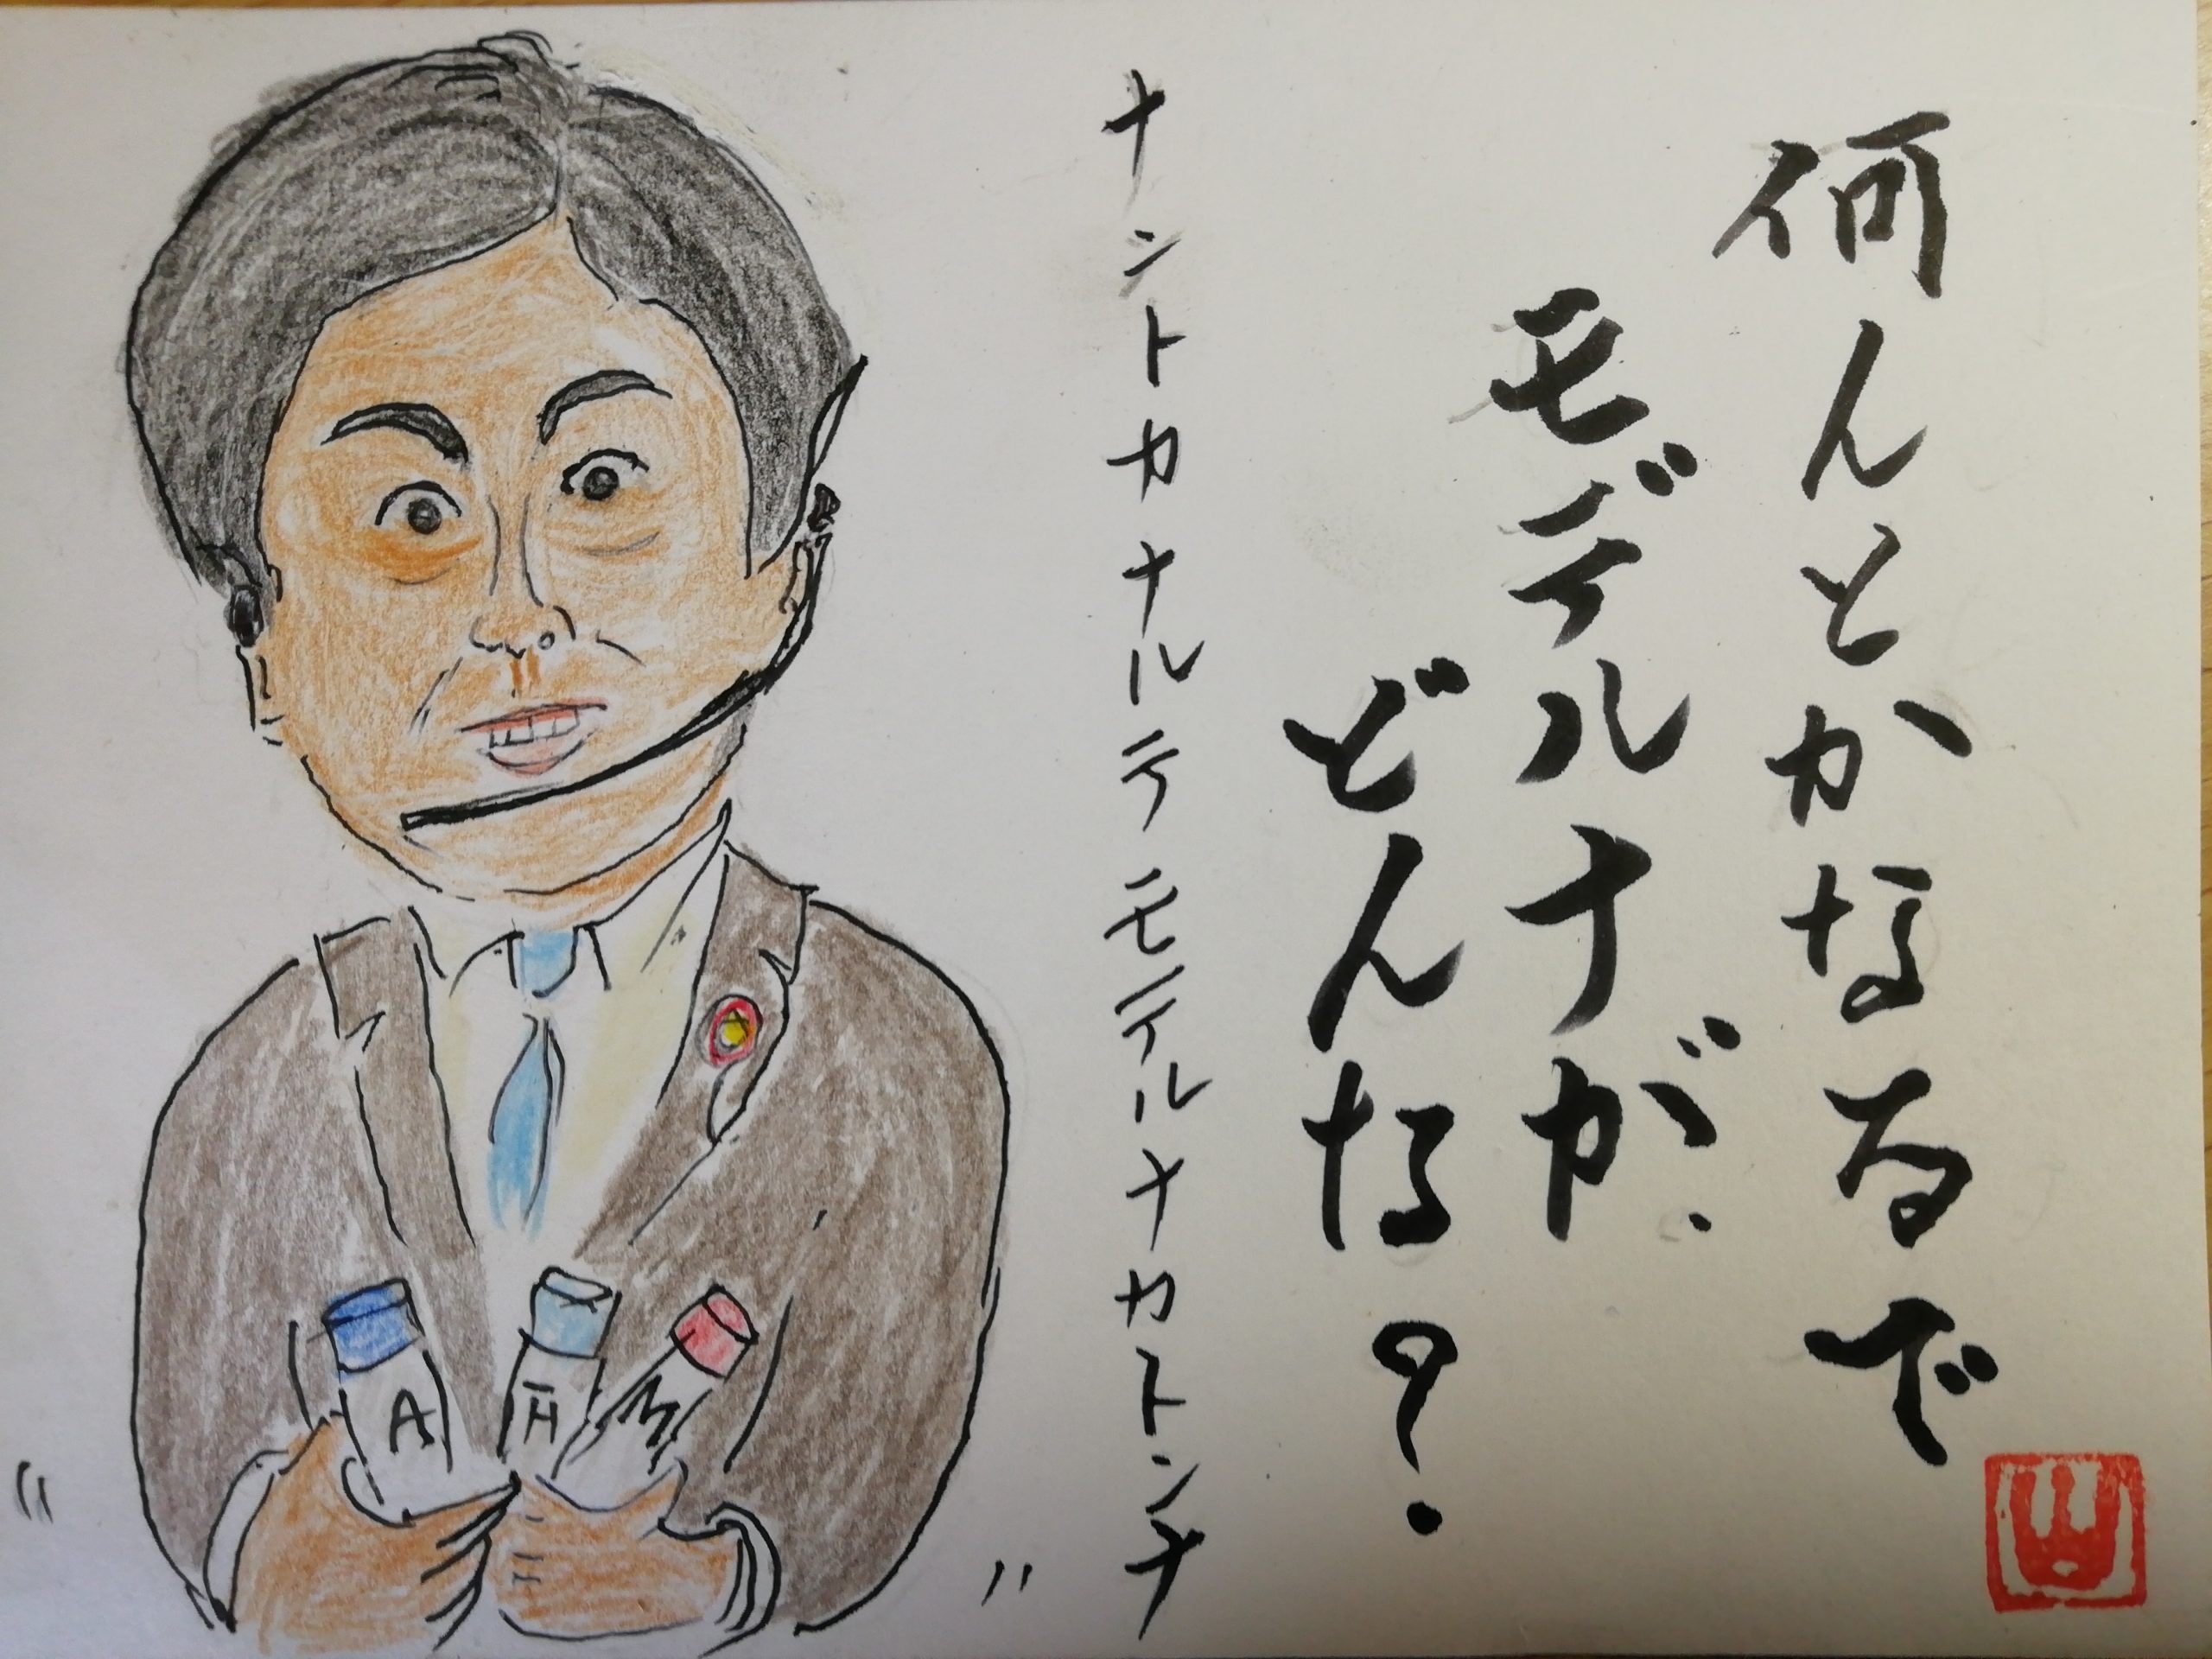 何んとかなるで
モデルナが
どんな？
ナントカナルテモテルナカトンナ
A
M